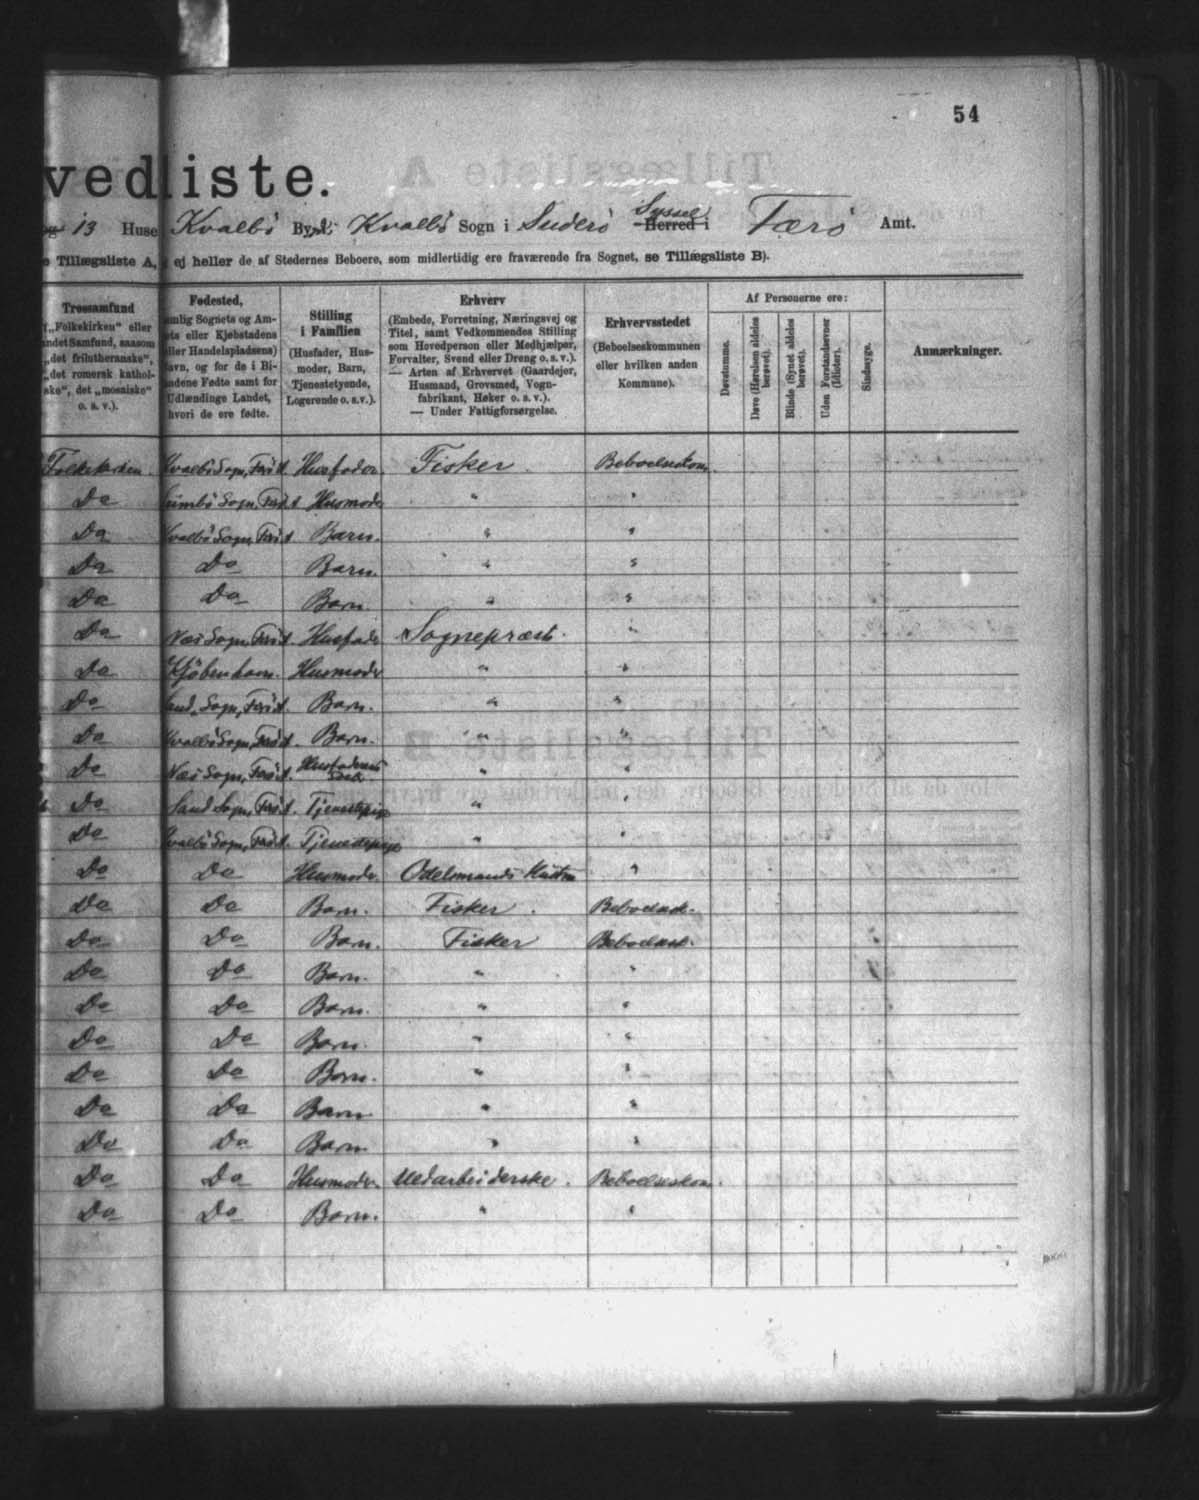 54
vedliste.
13 Huse Kvalbö By, Kvalbö Sogn i Suderö Syssel Herred i Færö Amt.
Tillægsliste A, ej heller de af Stedernes Beboere, som midlertidig ere fraværende fra Sognet, se Tillægsliste B).
Trossamfund
(„Folkekirken“ eller
andet Samfund, saasom
„det frilutheranske“,
„det romersk kathol-
ske“, det „mosaiske“
o. s. v.).
Fødested,
nemlig Sognets og Am-
ets eller Kjøbstadens
eller Handelspladsens)
Navn, og for de i Bi-
landene Fødte samt for
Udlændinge Landet,
hvori de ere fødte.
Stilling
i Familien
(Husfader, Hus-
moder, Barn,
Tjenestetyende,
Logerende o. s. v.).
Erhverv
(Embede, Forretning, Næringsvej og
Titel, samt Vedkommendes Stilling
som Hovedperson eller Medhjælper,
Forvalter, Svend eller Dreng o. s. v.).
— Arten af Erhvervet (Gaardejer,
Husmand, Grovsmed, Vogn-
fabrikant, Høker o. s. v.).
— Under Fattigforsørgelse.
Erhvervsstedet
(Beboelseskommunen
eller hvilken anden
Kommune).
Af Personerne ere:
Døvstumme.
Døve (Hørelsen aldeles berøvet).
Blinde (Synet aldeles berøvet).
Uden Forstandsevner (Idioter).
Sindssyge.
Anmærkninger.
Folkekirken. Kvalbö Sogn, Færö A. Husfader. Fisker. Beboelseskom.
Do Sumbö Sogn, Færö A Husmoder " "
Do Kvalbö Sogn, Færö A. Barn. " "
Do Do Barn. " "
Do Do Barn. " "
Do Næs Sogn, Færö A. Husfader Sognepræst. "
Do Kjöbenhavn. Husmoder " "
Do Sand Sogn, Færö A. Barn. " "
Do Kvalbö Sogn, Færö A. Barn. " "
Do Næs Sogn, Færö A. Husfaderens " "
Do Sand Sogn, Færö A. Tjenestepige " "
Do Kvalbö Sogn, Færö A. Tjenestepige " "
Do Do Husmoder. Odelsmands "
Do Do Barn. Fisker. Beboelsesk.
Do Do Barn. Fisker Beboelsesk.
Do Do Barn. " "
Do Do Barn. " "
Do Do Barn. " "
Do Do Barn. " "
Do Do Barn " "
Do Do Barn. " "
Do Do Husmoder. Uldarbeiderske. Beboelseskom.
Do Do Barn. " "